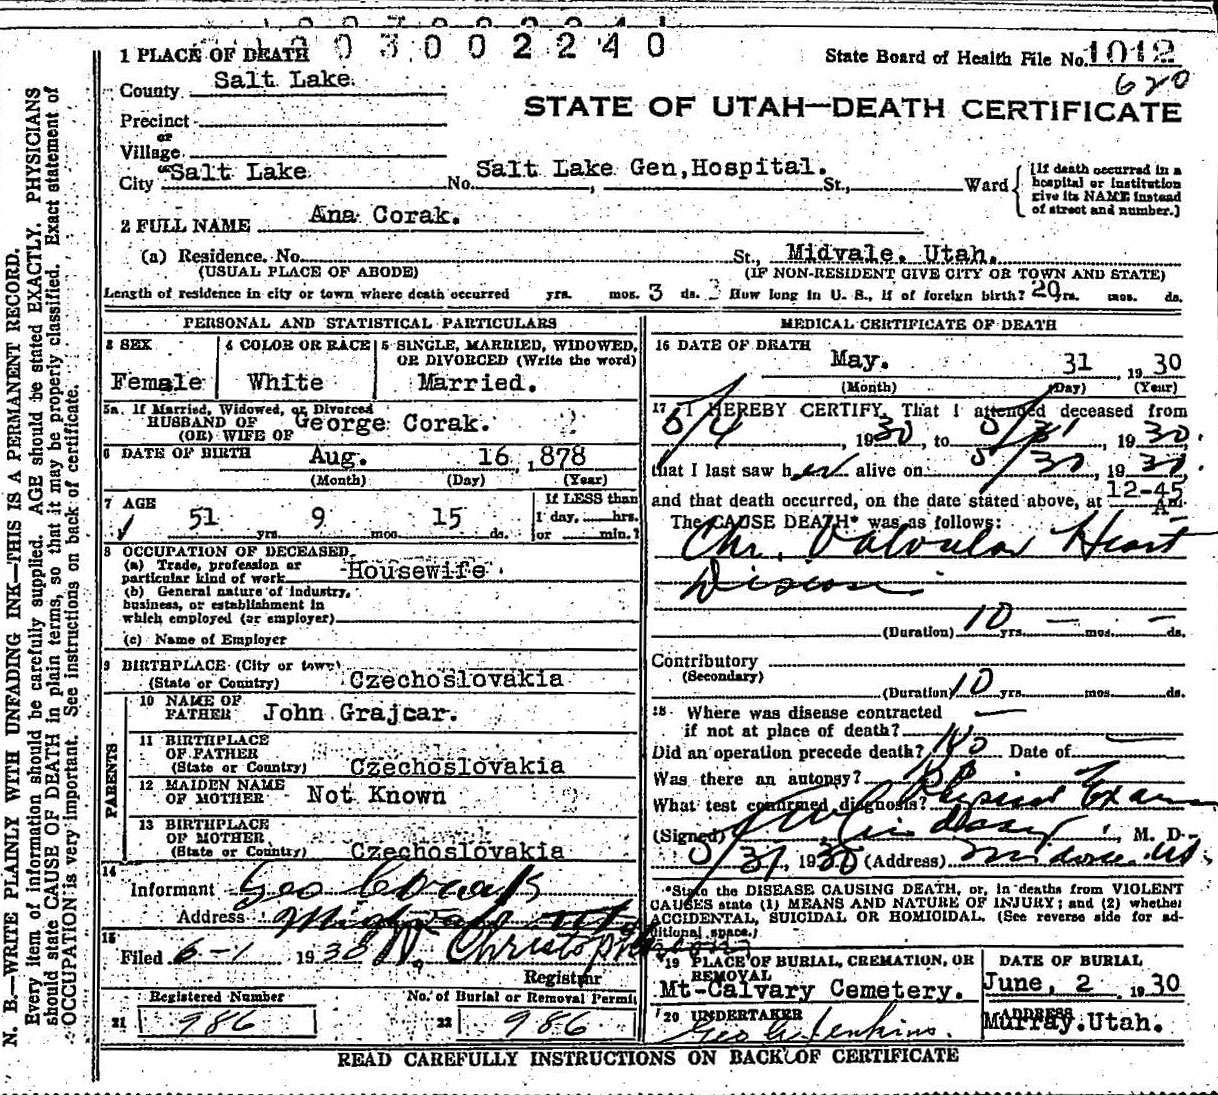 1003002240
1 PLACE OF DEATH
State Board of Health File No. 1012
620
County Salt Lake
STATE OF UTAH—DEATH CERTIFICATE
Precinct
or
Village
or
City Salt Lake No. Salt Lake Gen,Hospital. St., Ward
[If death occurred in a
hospital or institution
give its NAME instead
of street and number.]
2 FULL NAME Ana Corak.
(a) Residence. No. St., Midvale. Utah.
(USUAL PLACE OF ABODE) (IF NON-RESIDENT GIVE CITY OR TOWN AND STATE)
Length of residence in city or town where death occurred yrs. mos. 3 ds. How long in U. S., if of foreign birth? 20 yrs. mos. ds.
PERSONAL AND STATISTICAL PARTICULARS
3 SEX
Female
4 COLOR OR RACE
White
5 SINGLE, MARRIED, WIDOWED,
OR DIVORCED (Write the word)
Married.
5a. If Married, Widowed, or Divorced
HUSBAND OF
(OR) WIFE OF George Corak.
6 DATE OF BIRTH Aug. 16 ,878
(Month) (Day) (Year)
7 AGE
51 yrs. 9 mos. 15 ds.
If LESS than
1 day, hrs.
or min.?
8 OCCUPATION OF DECEASED
(a) Trade, profession or
particular kind of work Housewife
(b) General nature of industry,
business, or establishment in
which employed (or employer)
(c) Name of Employer
9 BIRTHPLACE (City or town)
(State or Country) Czechoslovakia
PARENTS
10 NAME OF
FATHER John Grajcar.
11 BIRTHPLACE
OF FATHER
(State or Country) Czechoslovakia
12 MAIDEN NAME
OF MOTHER Not Known
13 BIRTHPLACE
OF MOTHER
(State or Country) Czechoslovakia
14
Informant Geo Corak
Address Midvale Ut
15
Filed 6-1 1930
Registrar
Registered Number
21 986
No. of Burial or Removal Permit
22 986
MEDICAL CERTIFICATE OF DEATH
16 DATE OF DEATH
May. 31 , 1930
(Month) (Day) (Year)
17 I HEREBY CERTIFY, That I attended deceased from
5/4, 1930, to 5/31, 1930.
that I last saw her alive on 5/30, 1930.
and that death occurred, on the date stated above, at 12-45 Am.
The CAUSE DEATH* was as follows:
Chr. Valvular Heart
Disease
(Duration) 10 yrs. — mos. — ds.
Contributory
(Secondary)
(Duration) 10 yrs. mos. ds.
18 Where was disease contracted
if not at place of death? —
Did an operation precede death? No Date of —
Was there an autopsy?
What test confirmed diagnosis? Physical Exam
(Signed) , M. D.
5/31, 1930 (Address) Midvale Ut.
*State the DISEASE CAUSING DEATH, or, in deaths from VIOLENT
CAUSES state (1) MEANS AND NATURE OF INJURY; and (2) whether
ACCIDENTAL, SUICIDAL OR HOMICIDAL. (See reverse side for ad-
ditional space.)
19 PLACE OF BURIAL, CREMATION, OR
REMOVAL
Mt-Calvary Cemetery.
DATE OF BURIAL
June, 2 1930
20 UNDERTAKER
Geo Jenkins.
ADDRESS
Murray.Utah.
READ CAREFULLY INSTRUCTIONS ON BACK OF CERTIFICATE
N. B.—WRITE PLAINLY WITH UNFADING INK—THIS IS A PERMANENT RECORD.
Every item of information should be carefully supplied. AGE should be stated EXACTLY. PHYSICIANS
should state CAUSE OF DEATH in plain terms, so that it may be properly classified. Exact statement of
OCCUPATION is very important. See instructions on back of certificate.